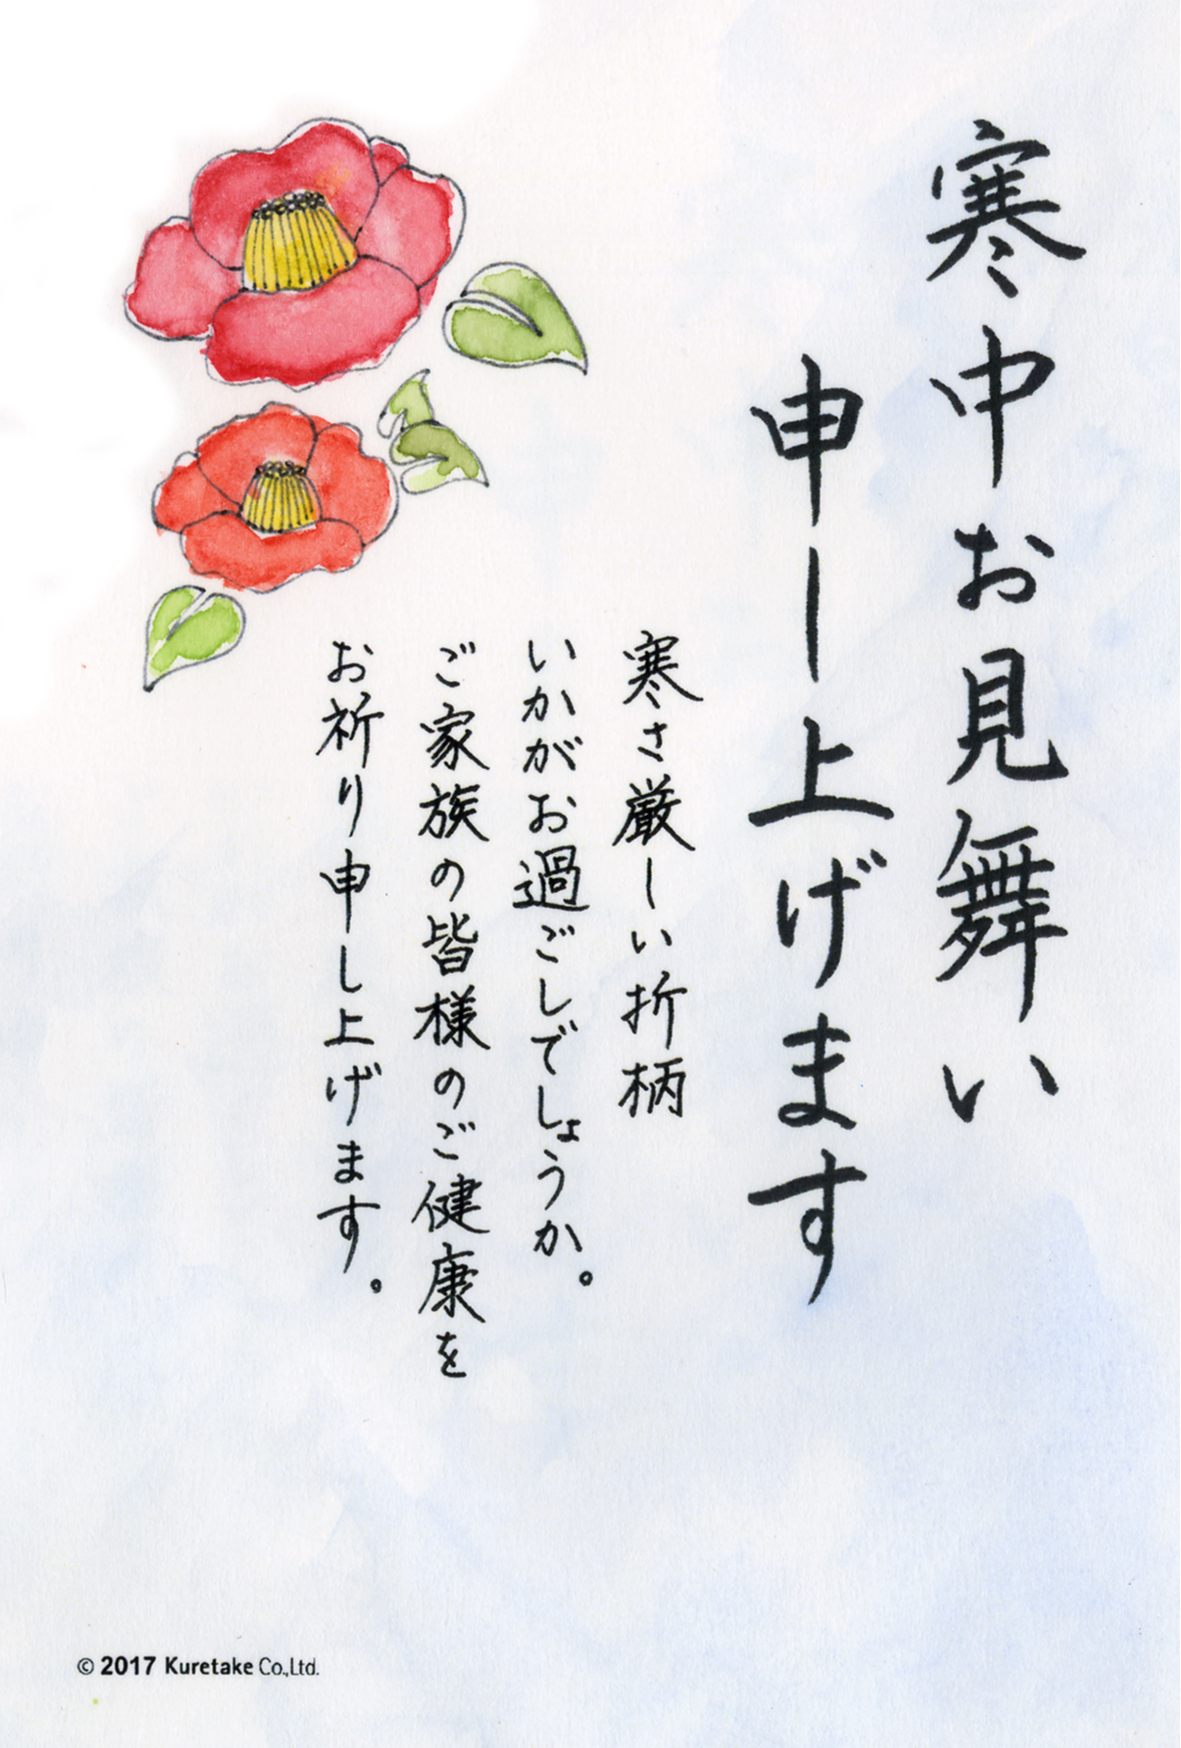 寒中お見舞い
申し上げます
寒さ厳しい折柄
いかがお過ごしでしょうか。
ご家族の皆様のご健康を
お祈り申し上げます。
© 2017 Kuretake Co.,Ltd.